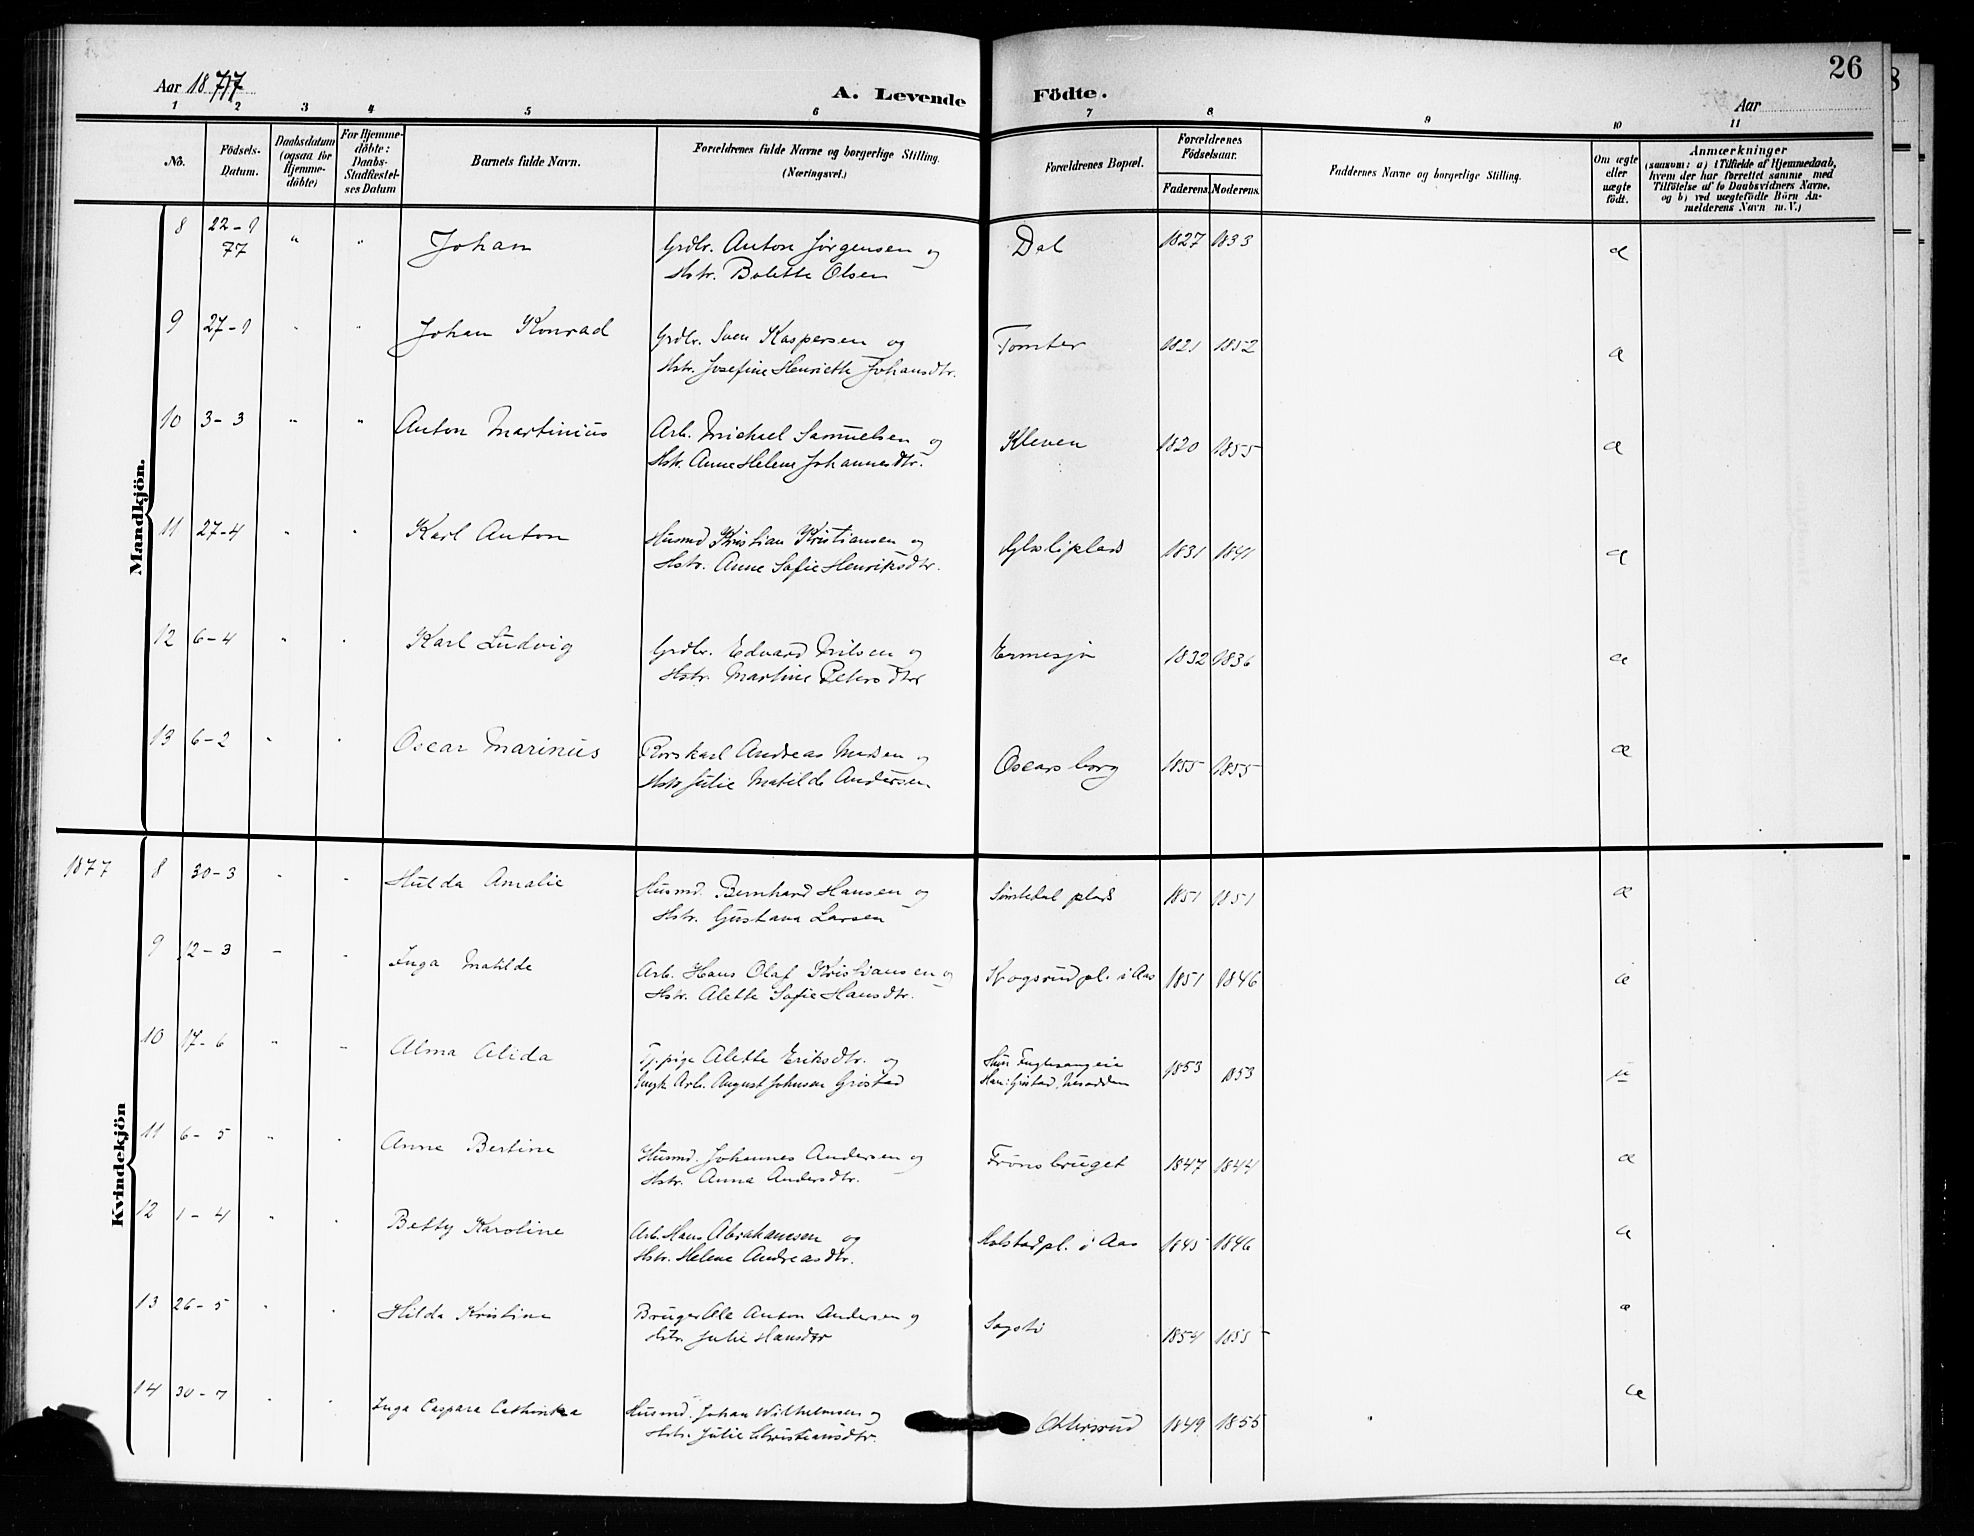 26
Aar 1877
A. Levende Födte.
Aar
1 2 3 4 5 6 7 8 9 10 11
No.
Födsels-Datum.
Daabsdatum (ogsaa for Hjemme-döbte)
For Hjemme-döbte: Daabs-Stadfæstel-ses Datum
Barnets fulde Navn.
Forældrenes fulde Navne og borgerlige Stilling. (Næringsvei.)
Forældrenes Bopæl.
Forældrenes Födselsaar.
Faderens. Moderens.
Faddernes Navne og borgerlige Stilling.
Om ægte eller uægte födt.
Anmærkninger (saasom: a) i Tilfælde af Hjemmedaab, hvem der har forrettet samme med Tilföielse af to Daabsvidners Navne, og b) ved uægtefödte Börn An-melderens Navn m. V.)
Mandkjön.
8 22-1 77 " " Johan Grdbr. Anton Jørgensen og Dal 1827 1833 æ
Hstr. Bolette Olsen
9 27-1 " " Johan Konrad Grdbr. Sven Kaspersen og Tomter 1821 1852 æ
Hstr. Josefine Henriette Johansdtr.
10 3-3 " " Anton Martinius Arb. Michael Samuelsen og Kleven 1820 1855 æ
Hstr. Anne Helene Johannesdtr.
11 27-4 " " Karl Anton Husmd Kristian Kristiansen og 1831 1841 æ
Hstr. Anne Sofie Henriksdtr.
12 6-4 " " Karl Ludvig Grdbr. Edvard Nilsen og Ermesjø 1832 1836 æ
Hstr. Martine Petersdtr
13 6-2 " " Oscar Marinus Rorskarl Andreas Nilsen og Oscarsborg 1855 1855 æ
Hstr Julie Matilde Andersen
Kvindekjön
1877 8 30-3 " " Hulda Amalie Husmd. Bernhard Hansen og plads 1851 1851 æ
Hstr. Gustava Larsen
9 12-3 " " Inga Matilde Arb. Hans Olaf Kristiansen og Krogsrud pl. i Aas 1851 1846 æ
Hstr. Alette Sofie Hansdtr.
10 17-6 " " Alma Alida Tj. pige Alette Eriksdtr. og Hun: Fuglesangeie 1853 1853 u
Ungk. Arb. August Johnsen Grøstad Han: Grøstad, Nesodden
11 6-5 " " Anne Bertine Husmd. Johannes Andersen og Frønsbruget 1847 1844 æ
Hstr. Anna Andersdtr.
12 1-4 " " Betty Karoline Arb. Hans Abrahamsen og Holstad pl. i Aas 1845 1846 æ
Hstr. Helene Andreasdtr.
13 26-5 " " Hilda Kristine Bruger Ole Anton Andersen og Sagsti 1854 1855 æ
Hstr. Julie Hansdtr
14 30-7 " " Inga Caspara Cathinka Husmd. Johan Wilhelmsen og Ottersrud 1849 1855 æ
Hstr. Julie Christiansdtr.